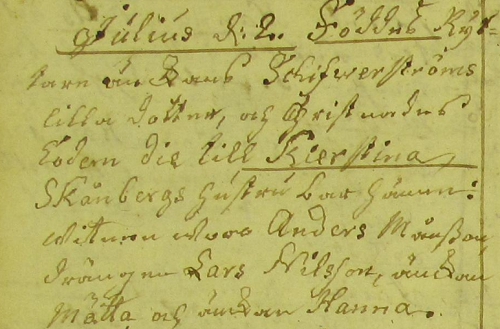 Julius d: 2. Föddes Ryt=
tare änckans Schifwerströms
lilla dotter, och Christnades
Eodem die till Kierstina,
Skånbergs hustru bar henne:
witnen woro Anders Månsson,
drängen Lars Nilsson, änckan
Mätta och änckan Hanna.